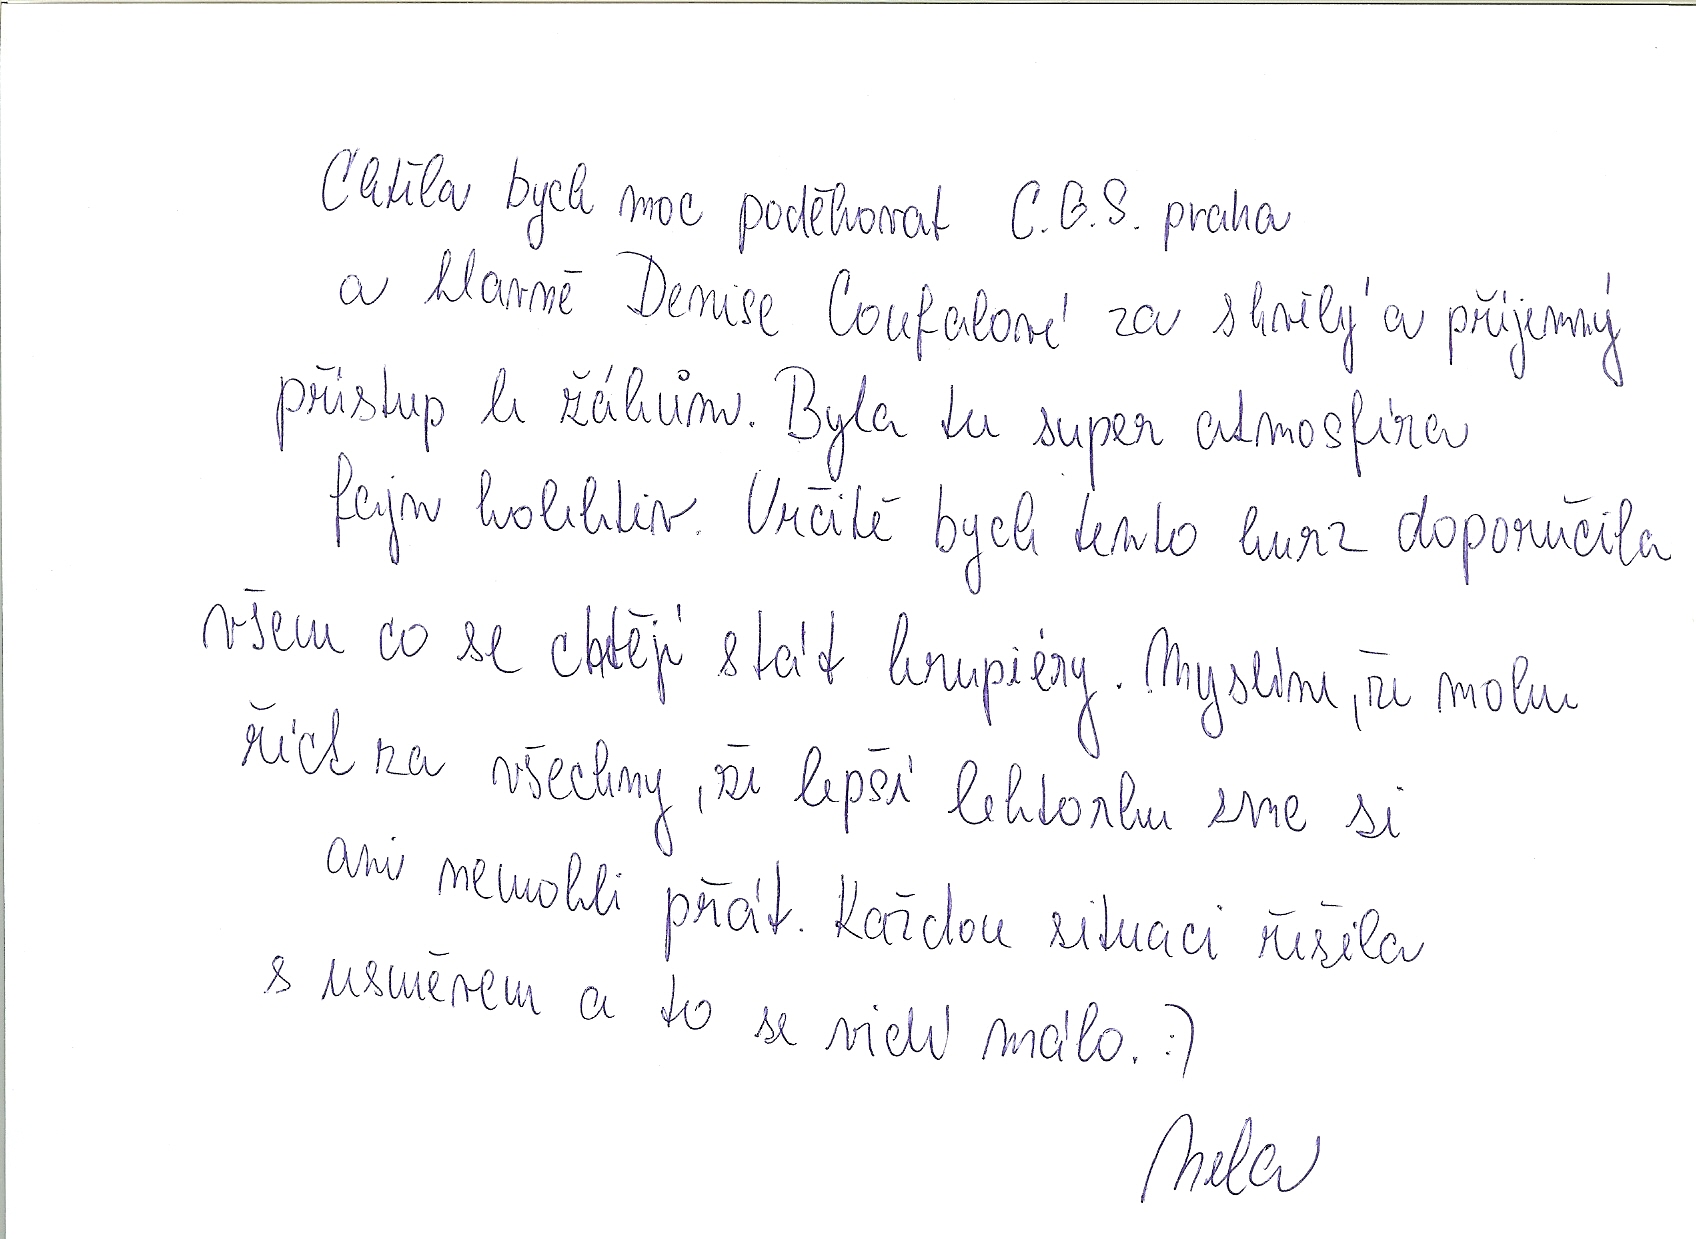 Chtěla bych moc poděkovat C.G.S. praha
a hlavně Denise Coufalové za skvělý a příjemný
přístup k žákům. Byla tu super atmosféra
fajn kolektiv. Určitě bych tento kurz doporučila
všem co se chtějí stát krupiéry. Myslím, že mohu
říct za všechny, že lepší lektorku sme si
ani nemohli přát. Každou situaci řešila
s usměvem a to se vidí málo. :)
Nela